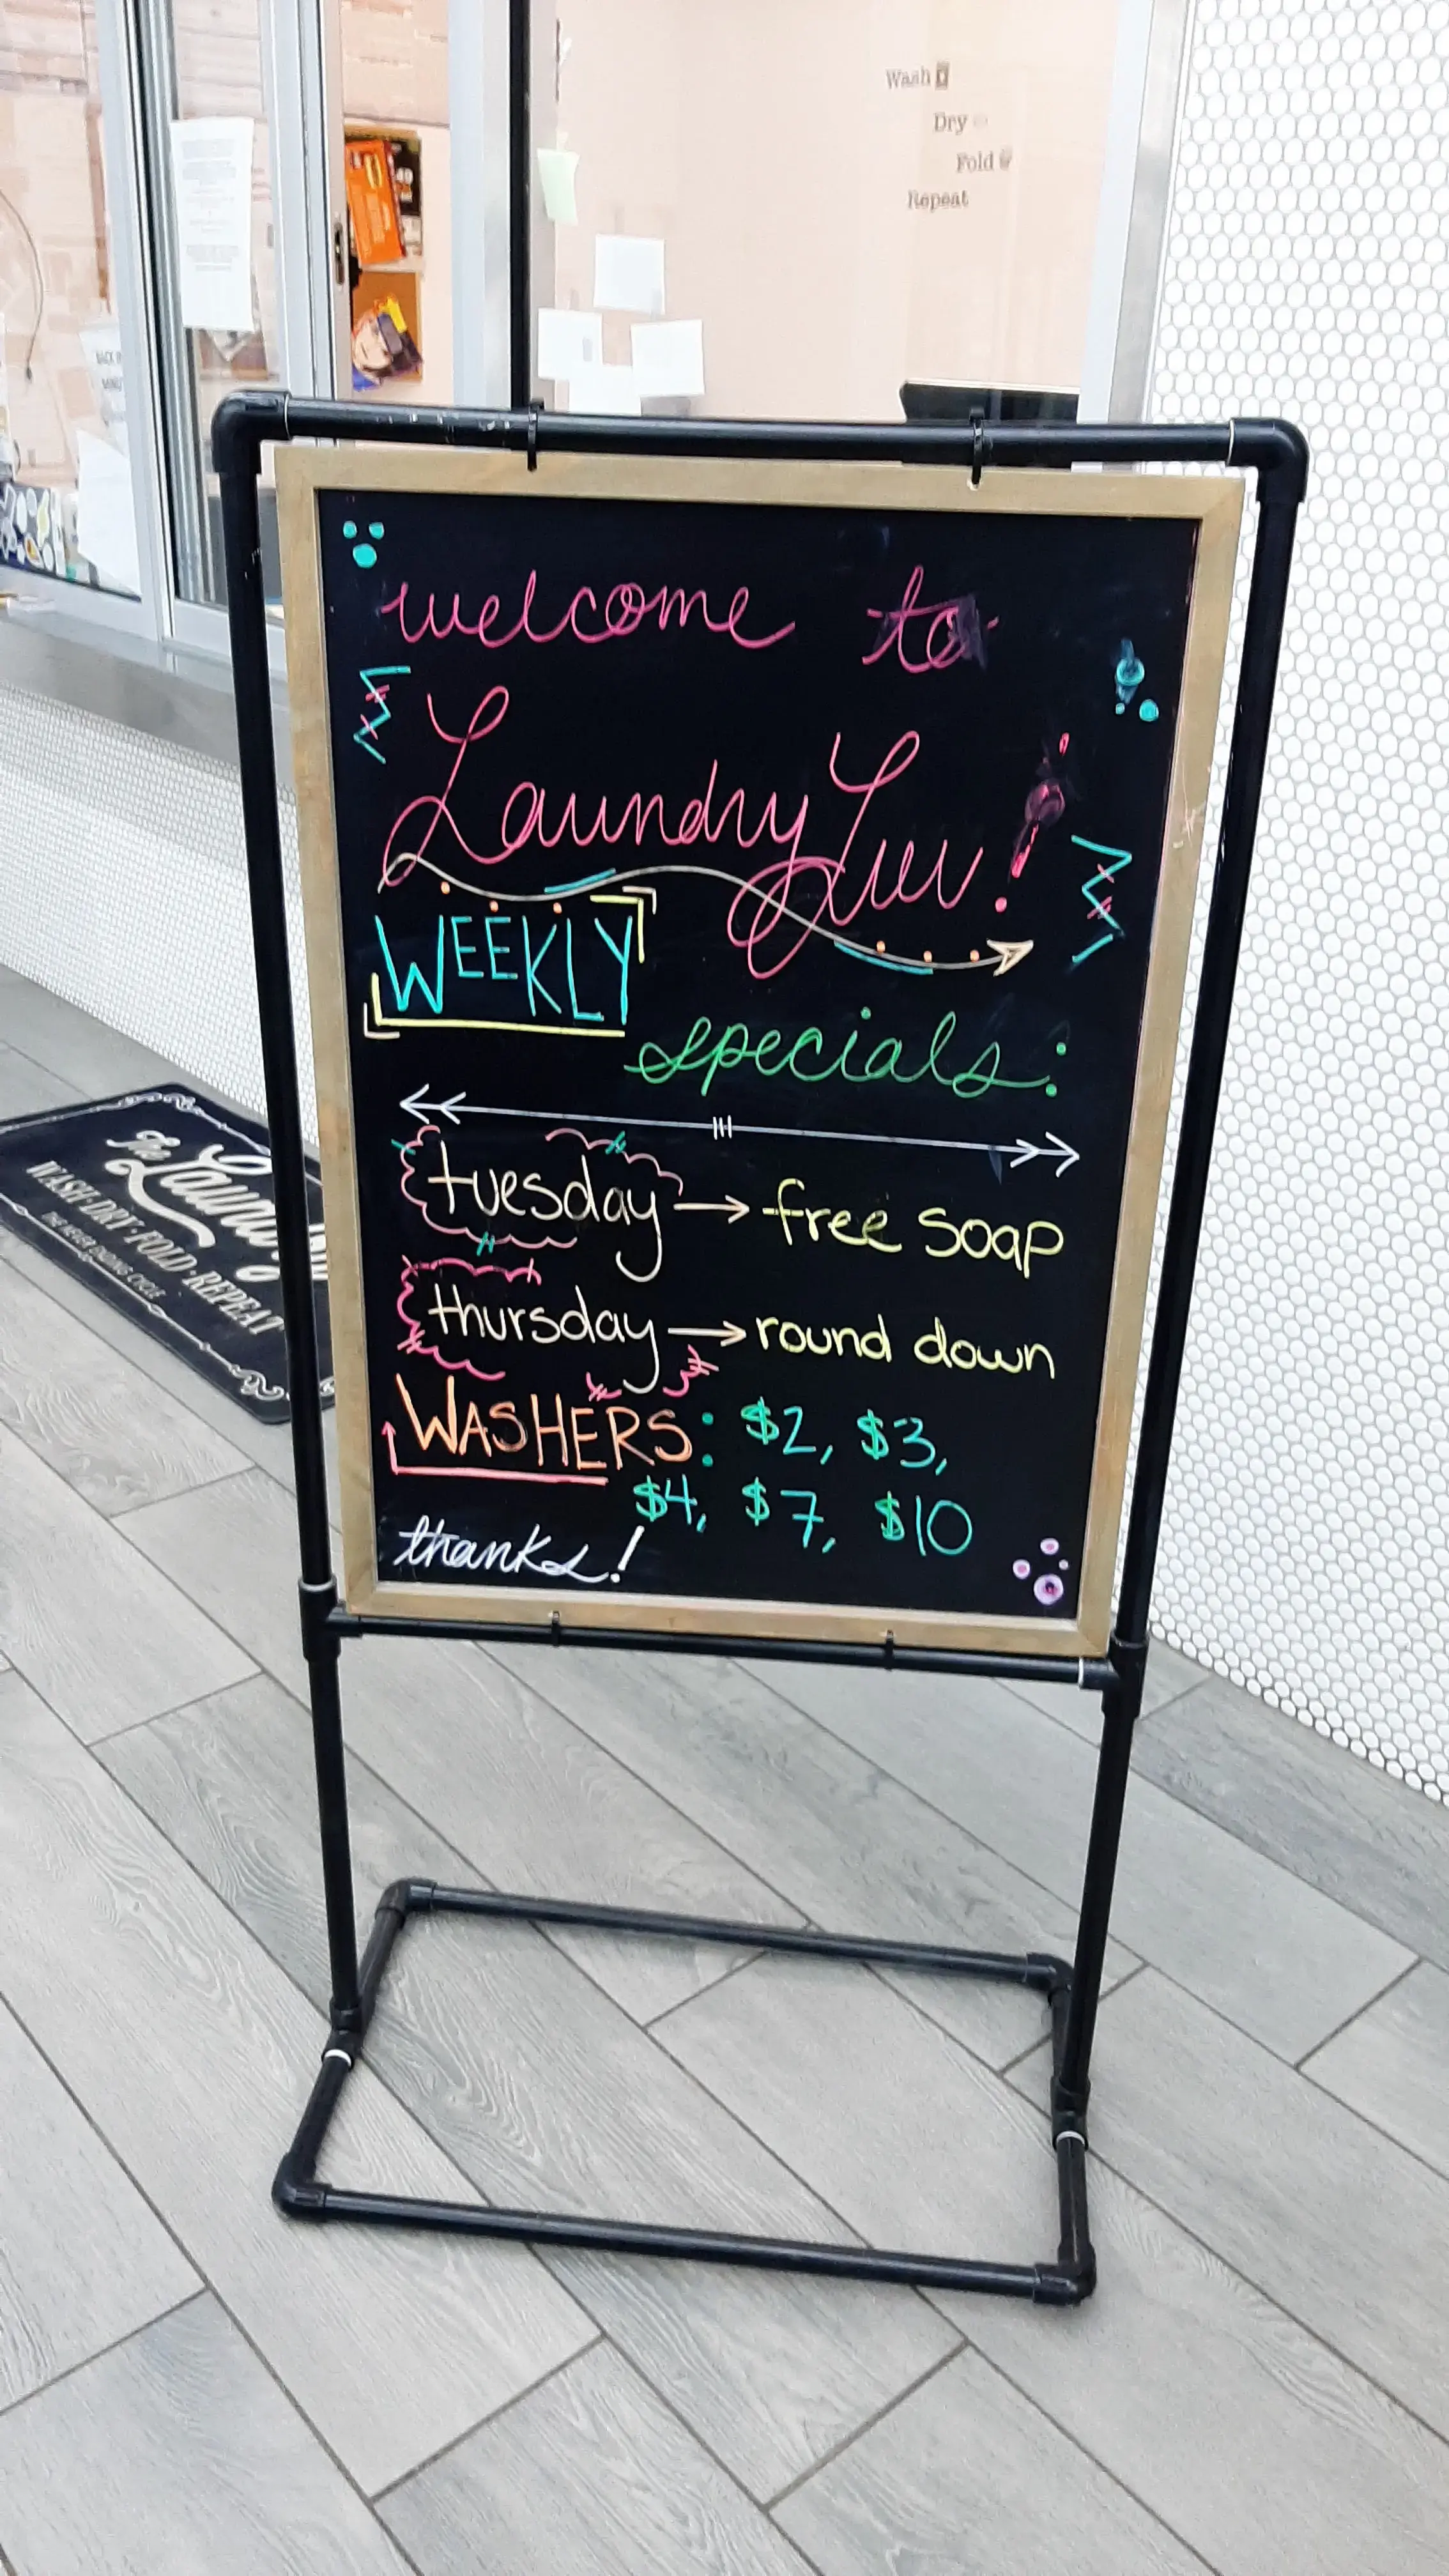 Wash
Dry
Fold
Repeat
welcome to
Laundry Luv!
WEEKLY
specials:
tuesday → free soap
thursday → round down
WASHERS: $2, $3,
$4, $7, $10
thanks!
The Laundry
WASH · DRY · FOLD · REPEAT